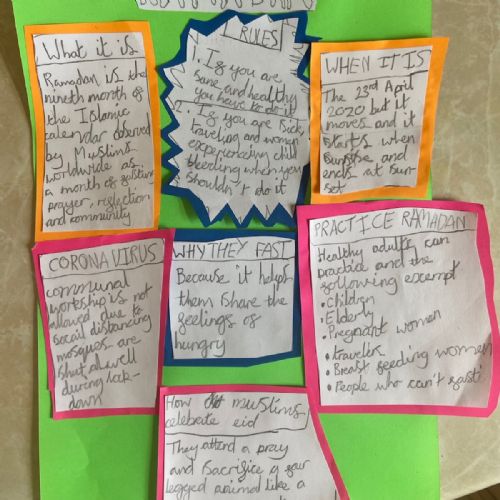 What it is
Ramadan is the
nineth month of
the Islamic
calendar observed
by Muslims
worldwide as
a month of fasting
prayer, reflection
and community
RULES
1. If you are
sane and healthy
you have to do it
2. If you are sick,
traveling and women
experiencing child
bleeding when you
shouldn't do it
WHEN IT IS
The 23rd April
2020 but it
moves and it
starts when
Sunrise and
ends at sun
set
CORONA VIRUS
communal
worship is not
allowed due to
socail distancing
mosques are
shut aswell
during lock-
down
WHY THEY FAST
Because it helps
them share the
feelings of
hungry
PRACTICE RAMADAN
Healthy adults can
practice and the
following exempt
• Children
• Elderly
• Pregnant women
• travelers
• Breast feeding women
• People who can't fast
How muslims
celebrate eid
They attend a pray
and sacrifice a four
legged animal like a